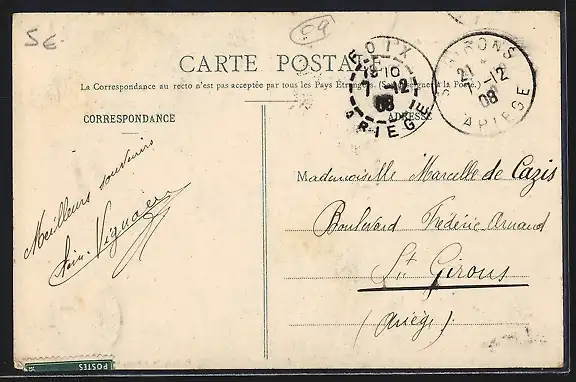 5€
09
CARTE POSTALE
La Correspondance au recto n'est pas acceptée par tous les Pays Étrangers. (Se renseigner à la Poste.)
CORRESPONDANCE
ADRESSE
FOIX
15 10
7 -12
08
ARIEGE
ST GIRONS
21
7 -12
08
ARIEGE
Meilleurs souvenirs
Vignaer
Mademoiselle Marcelle de Cazis
Boulevard Frédéric Arnaud
St Girons
(Ariège)
POSTES